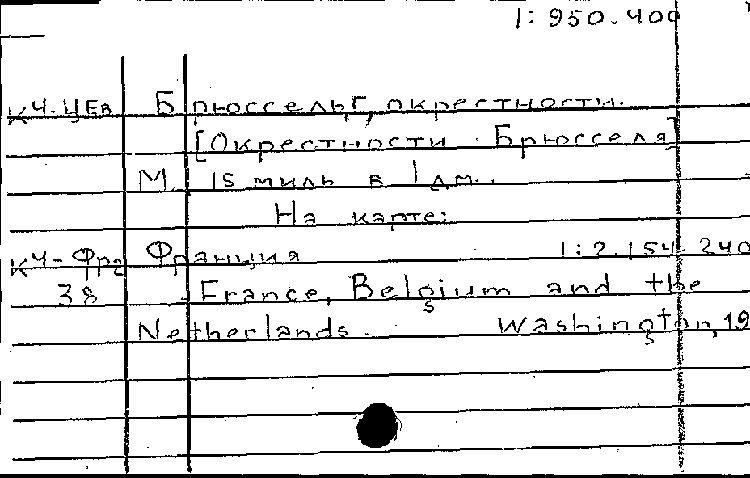 1: 950.400
К4-ЦЕв Брюссельг, окрестности.
[Окрестности Брюсселя]
М. 15 миль в 1 дм.
На карте:
К4-Фра Франция 1:2.154.240
38 France, Belgium and the
Netherlands. Washington, 19